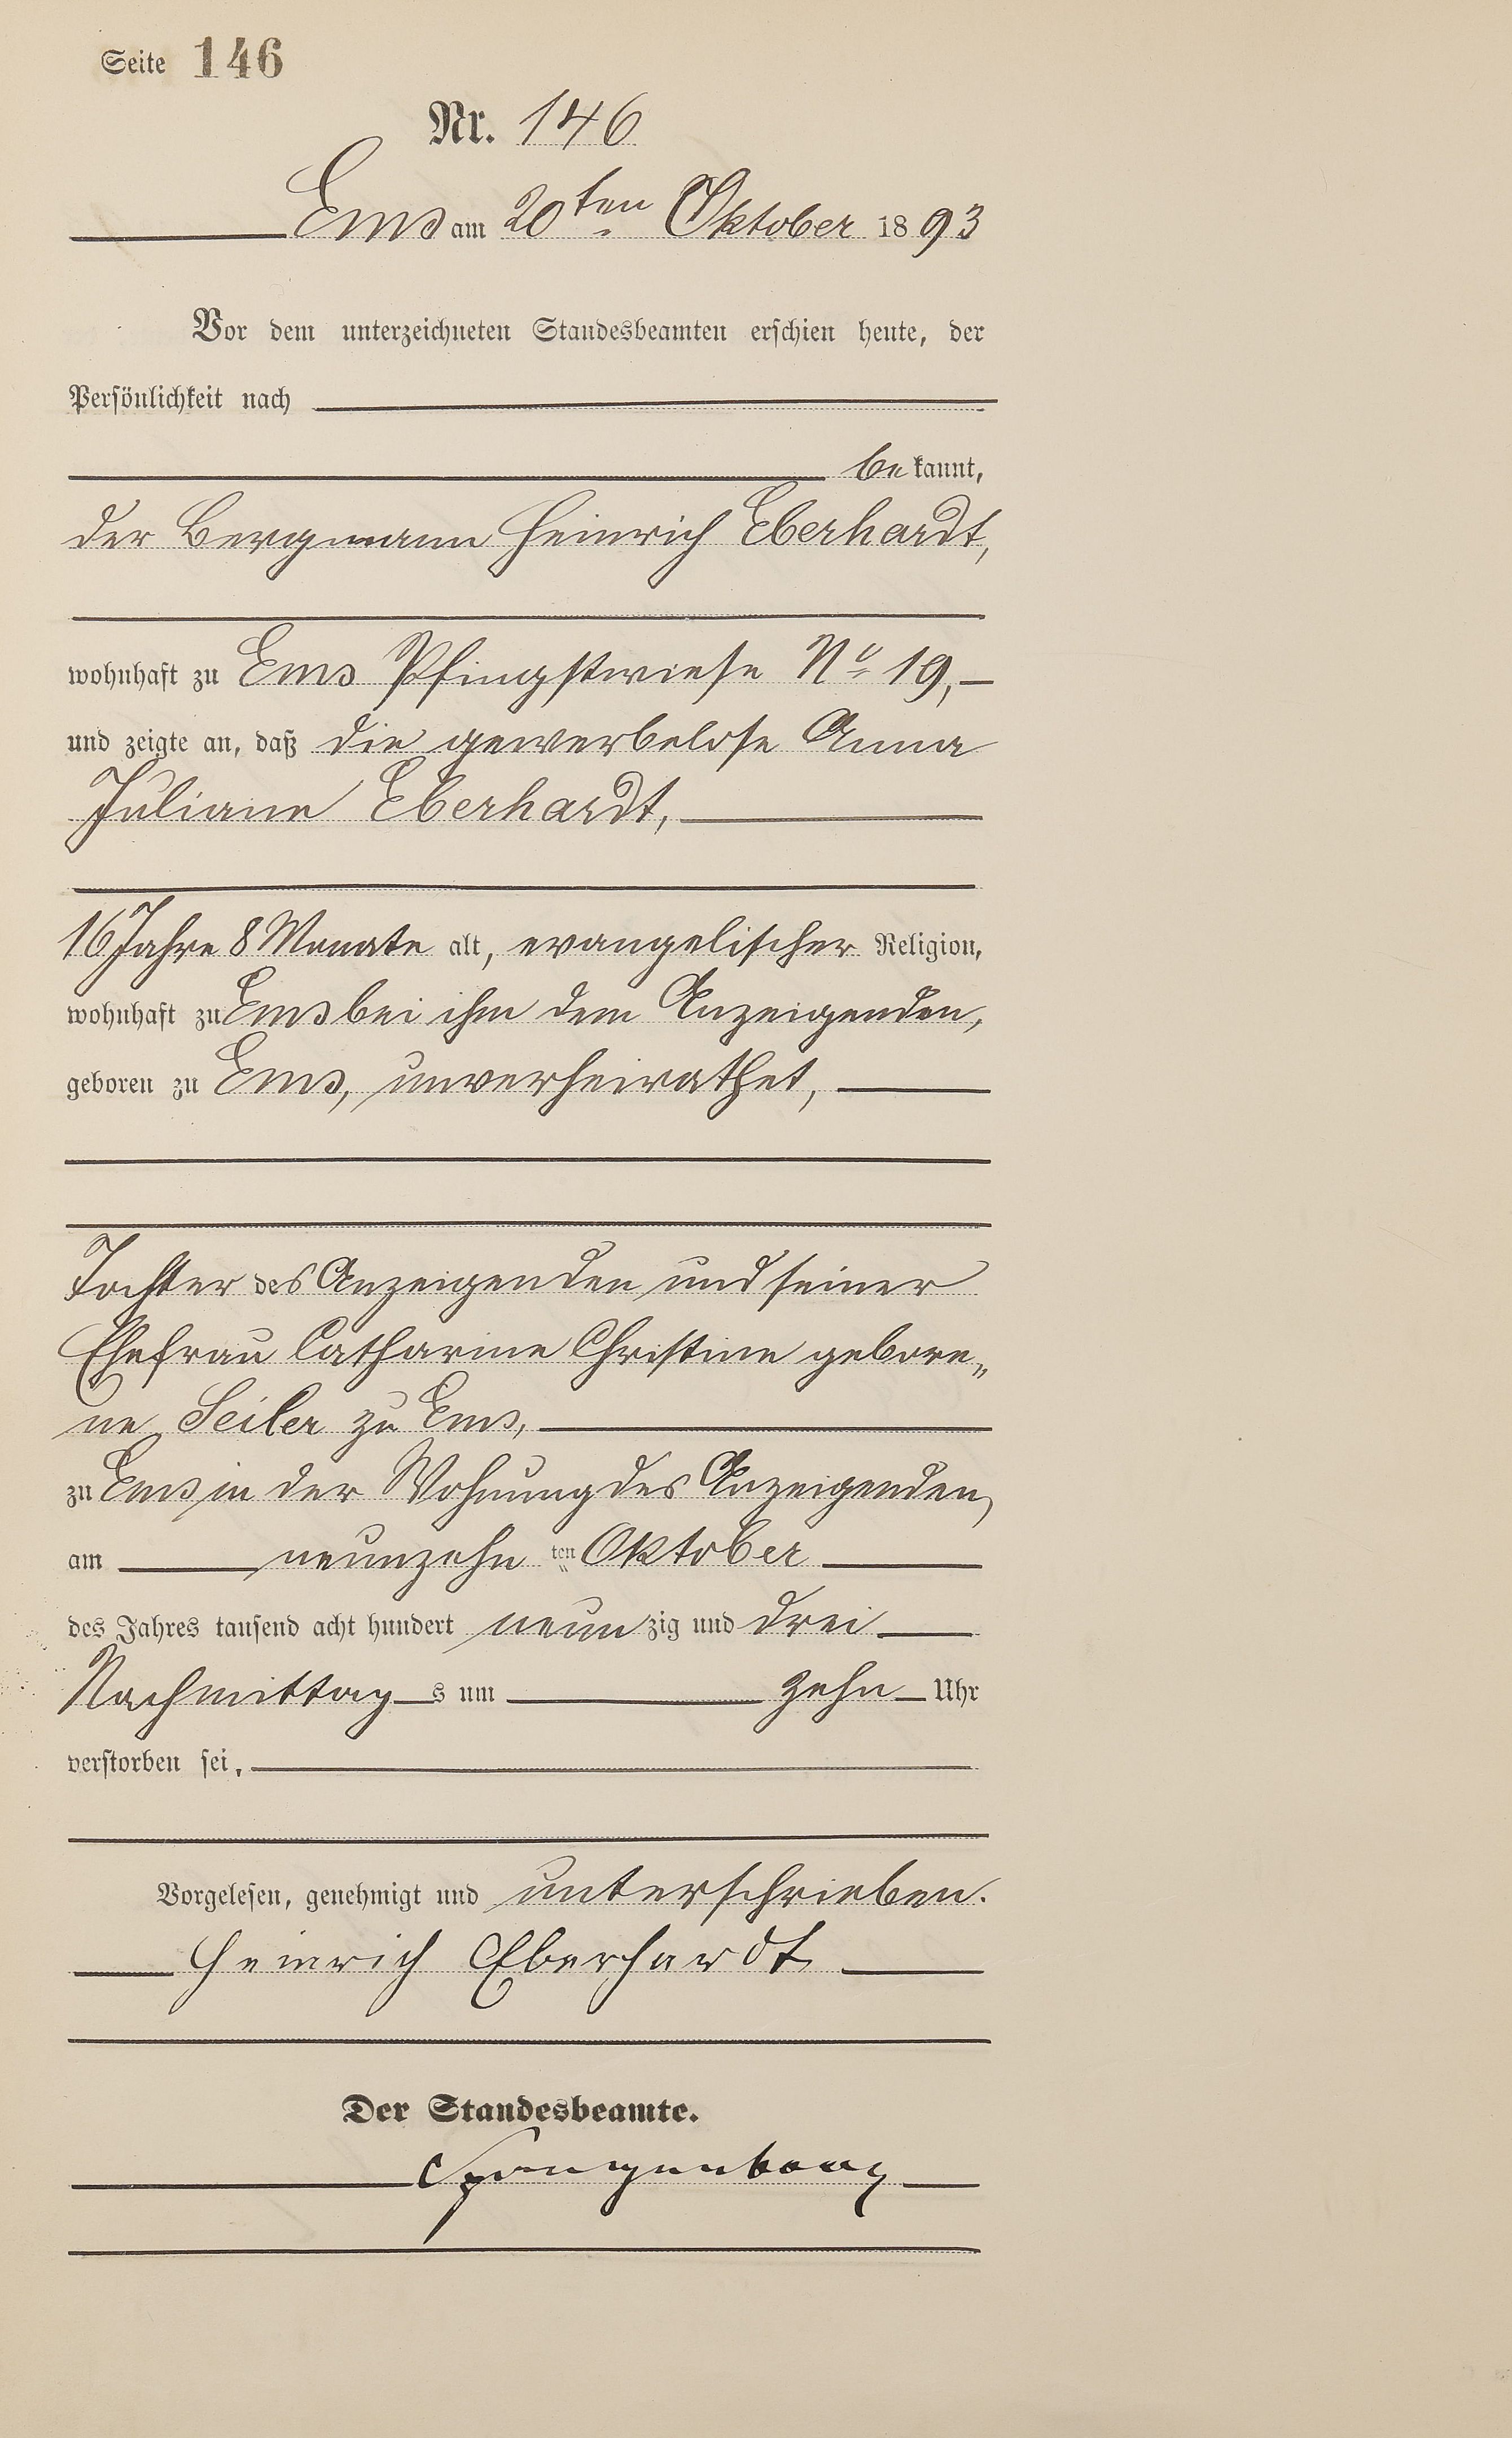 Seite 146
Nr. 146
Ems am 20ten Oktober 1893
Vor dem unterzeichneten Standesbeamten erschien heute, der
Persönlichkeit nach
bekannt,
der Bergmann Heinrich Eberhardt,
wohnhaft zu Ems Pfingstwiese No 19,
und zeigte an, daß die gewerbelose Anna
Juliane Eberhardt,
16 Jahre 8 Monate alt, evangelischer Religion,
wohnhaft zu Ems bei ihm dem Anzeigenden,
geboren zu Ems, unverheirathet,
Tochter des Anzeigenden und seiner
Ehefrau Catharine Christine gebore„
ne Seiler zu Ems,
zu Ems in der Wohnung des Anzeigenden,
am neunzehnten Oktober
des Jahres tausend acht hundert neunzig und drei
Nachmittags um zehn Uhr
verstorben sei.
Vorgelesen, genehmigt und unterschrieben.
Heinrich Eberhardt
Der Standesbeamte.
Spangenberg